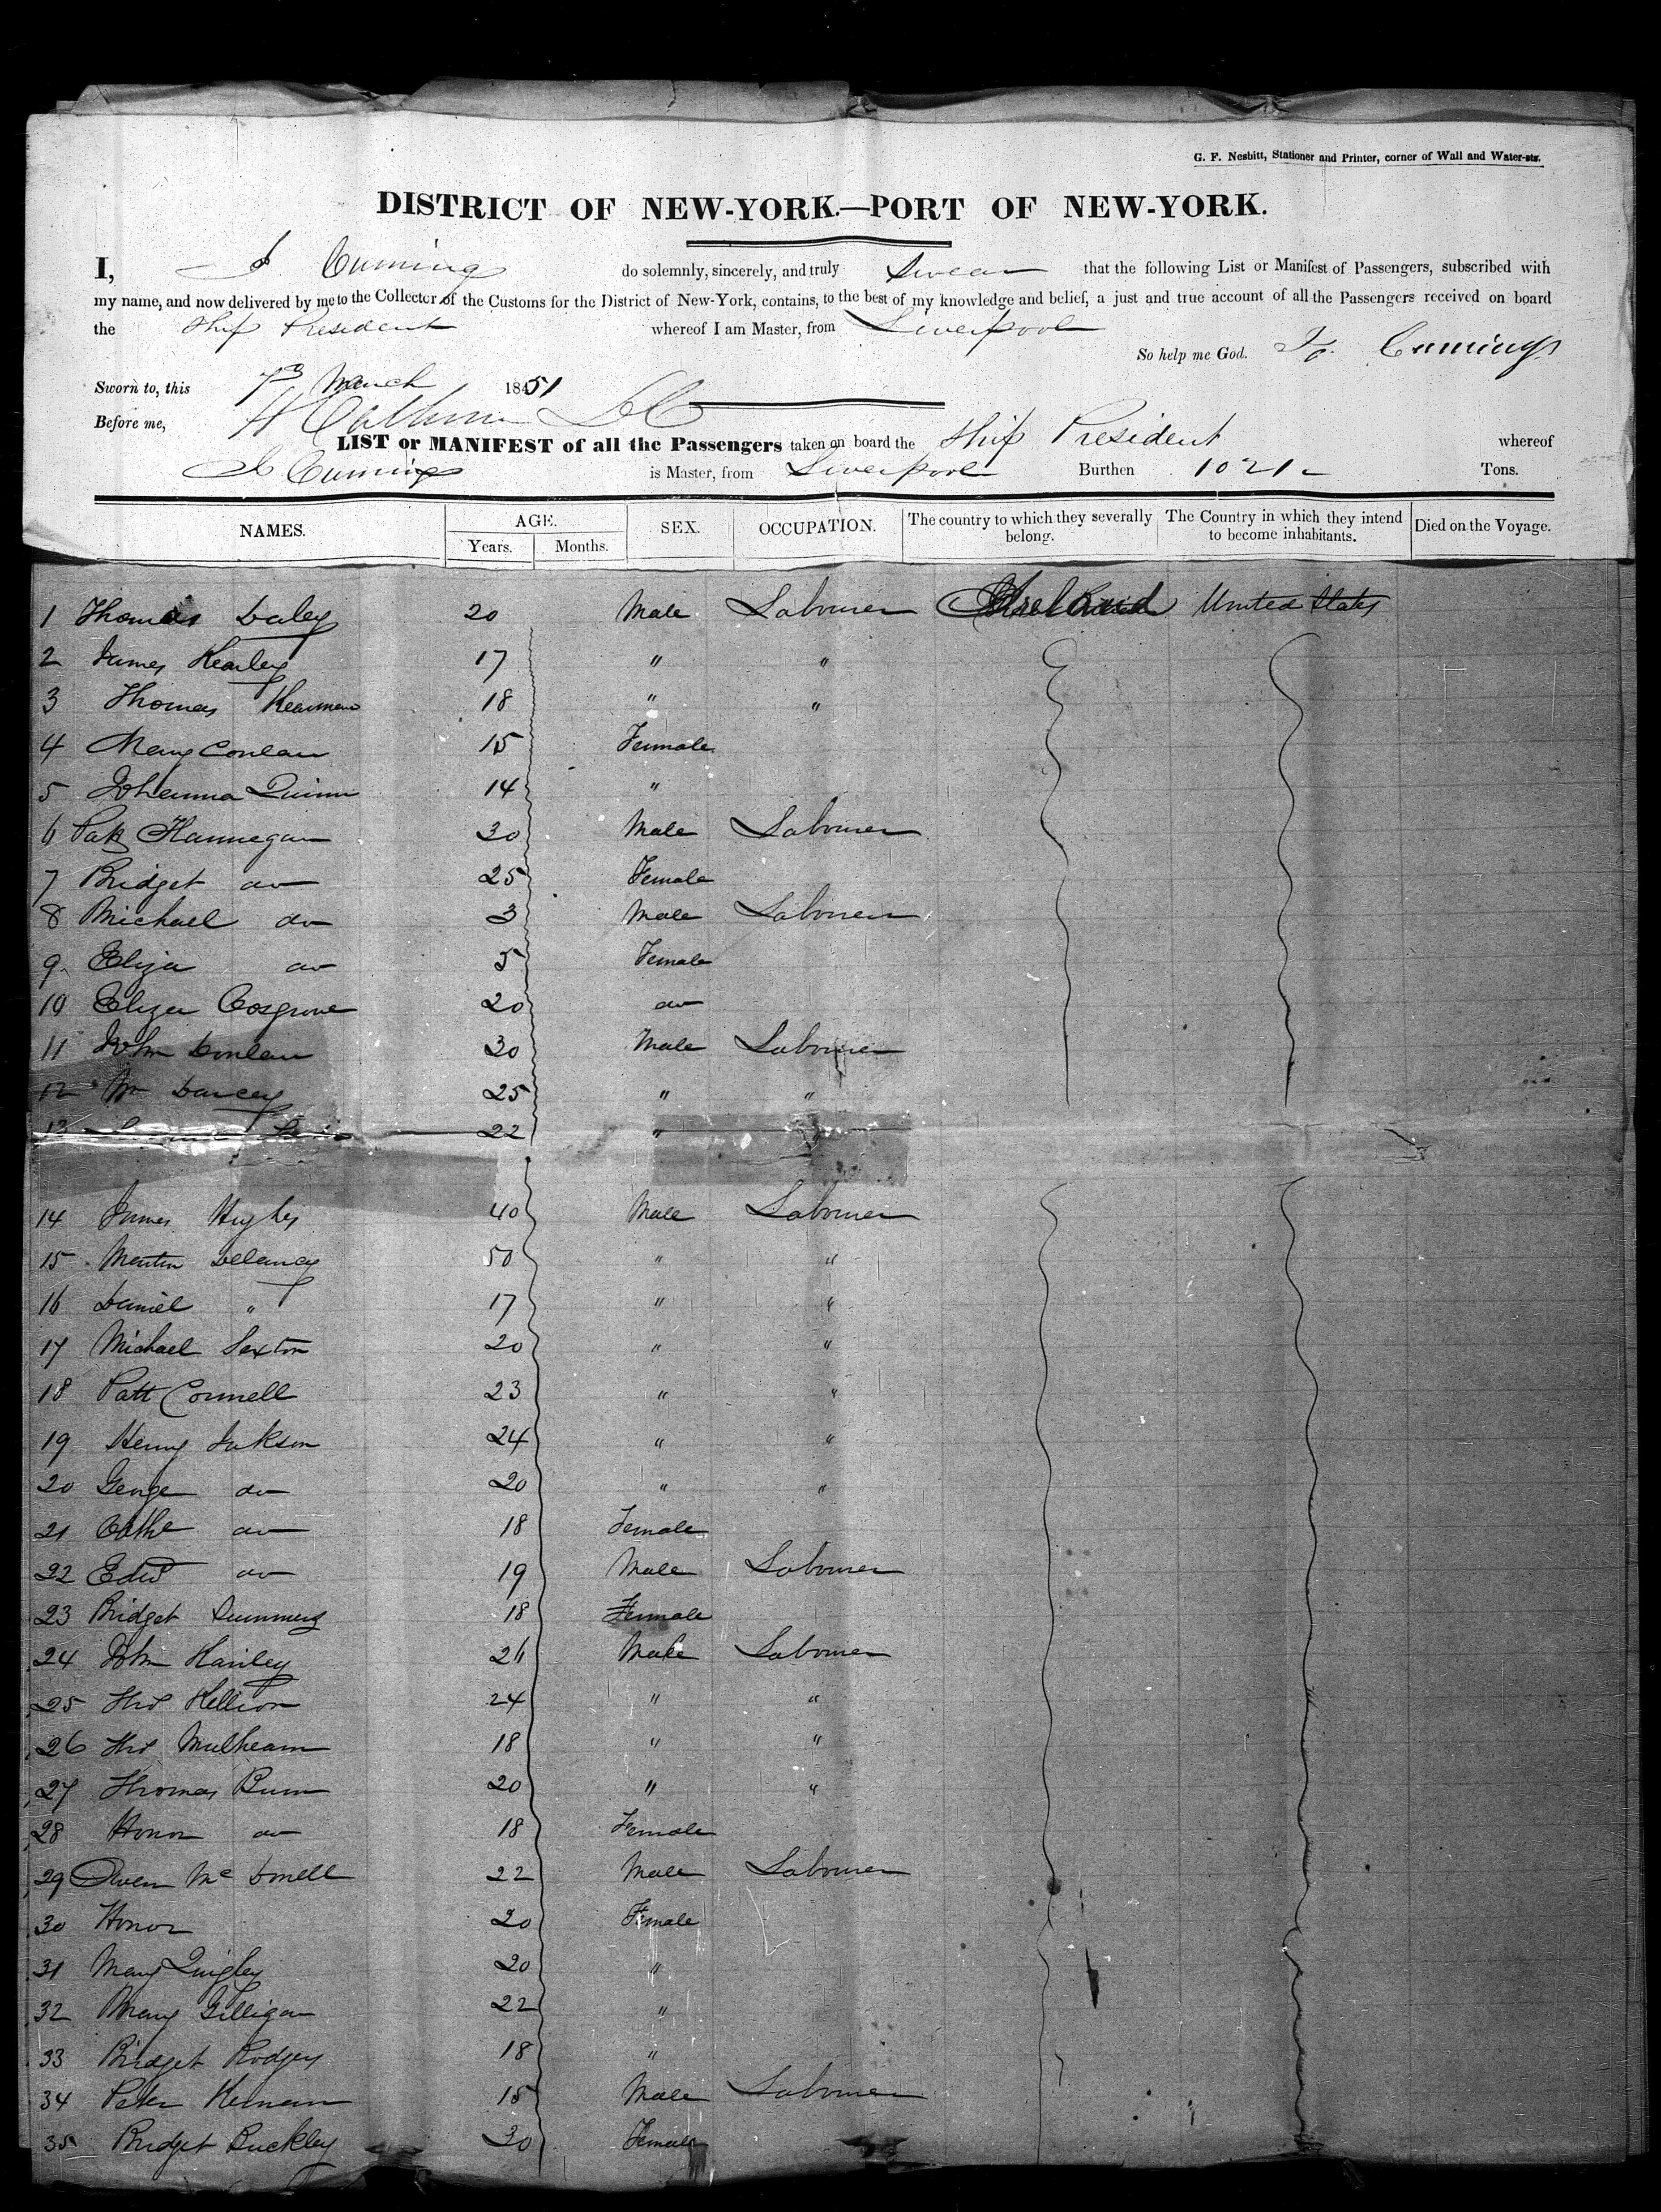 G. F. Nesbitt, Stationer and Printer, corner of Wall and Water-sts.
DISTRICT OF NEW-YORK.—PORT OF NEW-YORK.
I, J. Cuming do solemnly, sincerely, and truly Swear that the following List or Manifest of Passengers, subscribed with
my name, and now delivered by me to the Collector of the Customs for the District of New-York, contains, to the best of my knowledge and belief, a just and true account of all the Passengers received on board
the Ship President whereof I am Master, from Liverpool
So help me God. Cumings
Sworn to, this 7 March 1851
Before me,
LIST or MANIFEST of all the Passengers taken on board the Ship President whereof
Cuming is Master, from Liverpool Burthen 1021 Tons.
NAMES. AGE. Years. Months. SEX. OCCUPATION. The country to which they severally belong. The Country in which they intend to become inhabitants. Died on the Voyage.
1 Thomas Daley 20 Male Labourer Ireland United States
2 James Kearley 17 " "
3 Thomas 18 " "
4 Mary Conlan 15 Female
5 Johanna Quinn 14 "
6 Patk Hannegan 30 Male Labourer
7 Bridget do 25 Female
8 Michael do 3 Male Labourer
9 Eliza do 5 Female
10 Eliza Cosgrove 20 do
11 John Donlan 30 Male Labourer
12 Wm Darcey 25 " "
13 22 "
14 James Hughes 40 Male Labourer
15 Martin Delaney 50 " "
16 Daniel " 17 " "
17 Michael Sexton 20 " "
18 Patt Connell 23 " "
19 Henry Jakson 24 " "
20 George do 20 " "
21 Cathe do 18 Female
22 Edwd do 19 Male Labourer
23 Bridget Summers 18 Female
24 John Kanley 26 Male Labourer
25 Thos Kellion 24 " "
26 Thos Mulhearn 18 " "
27 Thomas Burn 20 " "
28 Honor do 18 Female
29 Owen Mc Donell 22 Male Labourer
30 Honor 20 Female
31 Mary Quigley 20 "
32 Mary Gilligan 22 "
33 Bridget Rodgers 18 "
34 Peter Kernan 15 Male Labourer
35 Bridget Buckley 30 Female